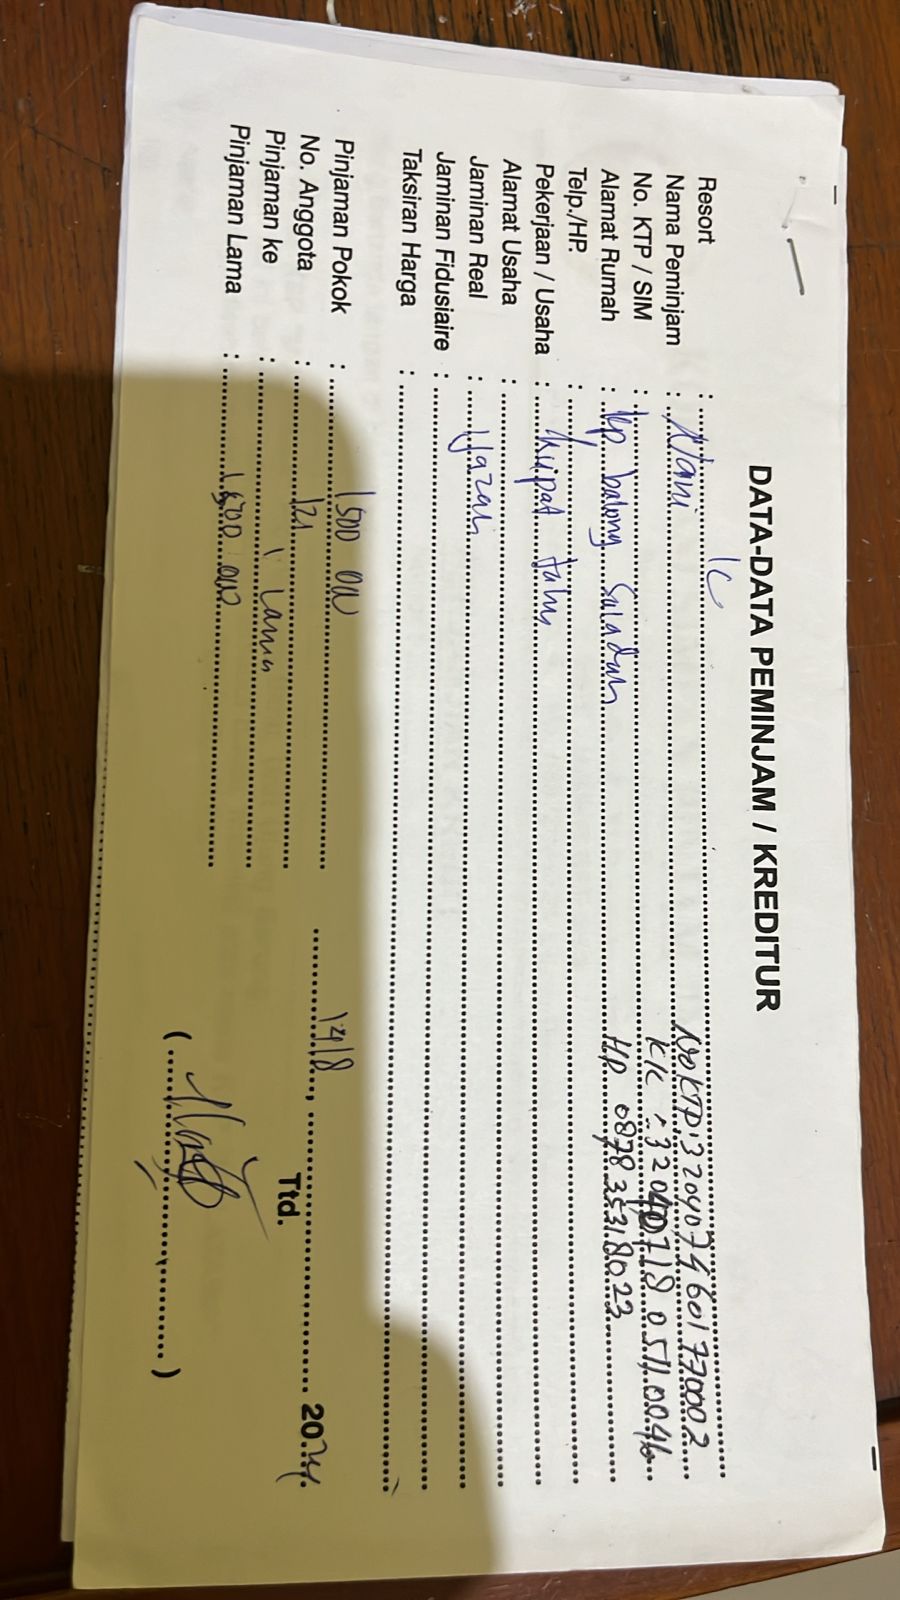 DATA-DATA PEMINJAM / KREDITUR
Resort : 1C
Nama Peminjam : Nani No KTP: 3204074601770002
No. KTP / SIM : KK : 3204071805110046
Alamat Rumah : kp balong Saladah HP 087835318023
Telp./HP. :
Pekerjaan / Usaha : kupat tahu
Alamat Usaha :
Jaminan Real : Ijazah
Jaminan Fidusiaire :
Taksiran Harga :
Pinjaman Pokok : 1500 000 14/8, 2024
No. Anggota : 121 Ttd.
Pinjaman ke : 1 Lama
Pinjaman Lama : 1500 000
( )